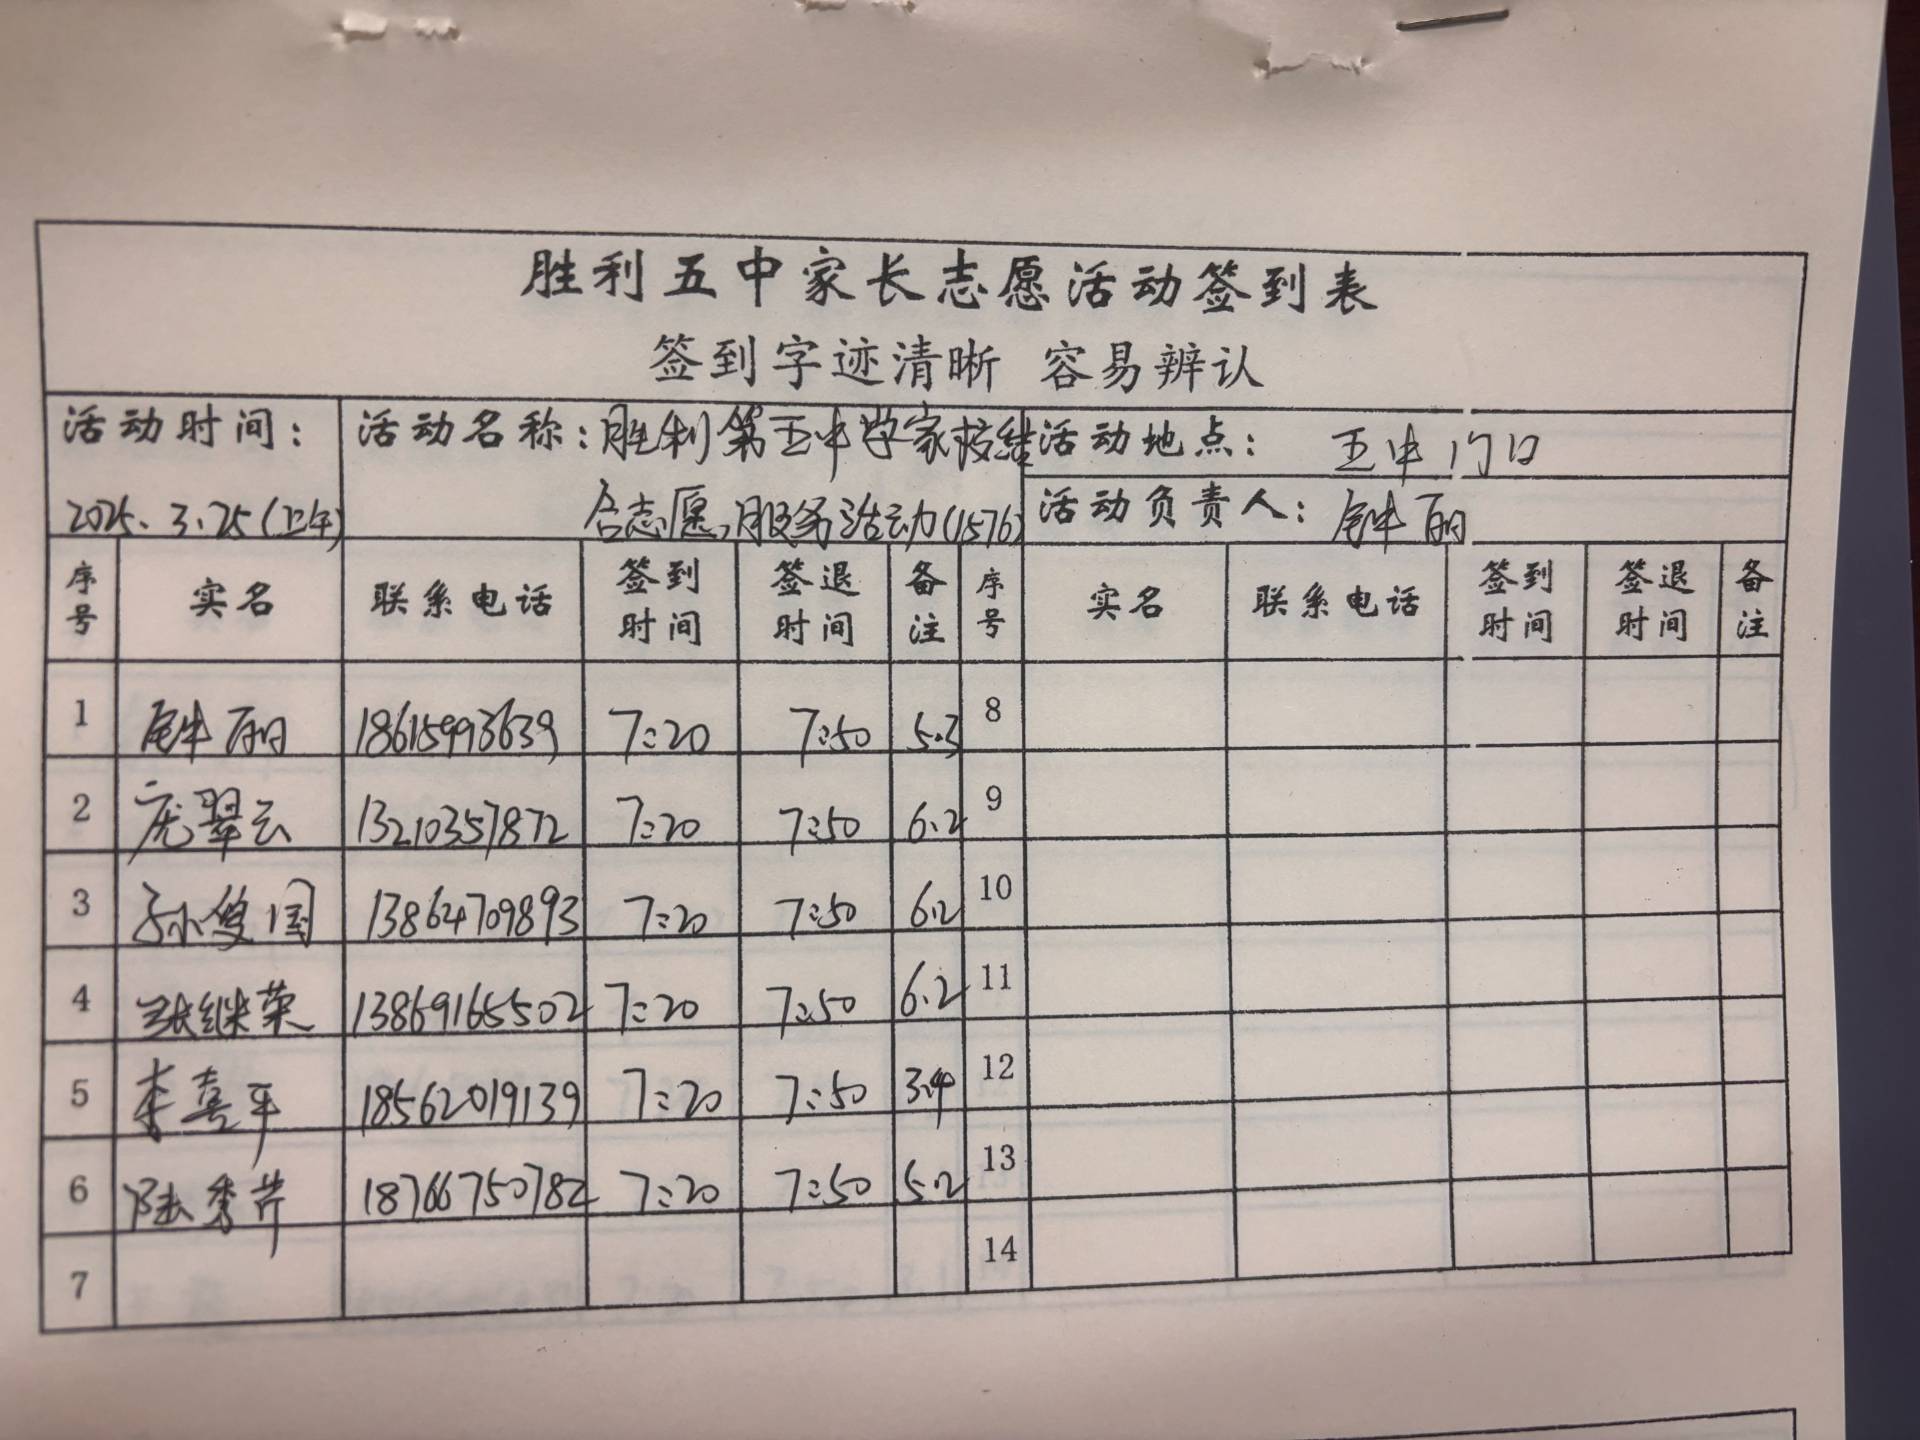 胜利五中家长志愿活动签到表
签到字迹清晰 容易辨认
活动时间：
2025.3.25(上午)
活动名称：胜利第五中学家校结
合志愿服务活动(1576)
活动地点： 五中门口
活动负责人： 钟丽
序号 实名 联系电话 签到时间 签退时间 备注 序号 实名 联系电话 签到时间 签退时间 备注
1 钟丽 18615993639 7:20 7:50 5.3 8
2 庞翠云 13210357872 7:20 7:50 6.2 9
3 孙俊国 13864709893 7:20 7:50 6.2 10
4 张继荣 13869165502 7:20 7:50 6.2 11
5 李喜平 18562019139 7:20 7:50 3.4 12
6 陆秀芹 18766750782 7:20 7:50 5.2 13
7 14